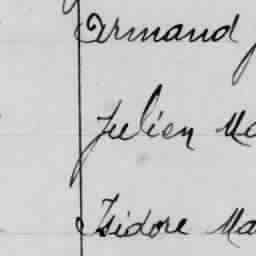 Armand
Julien Ma
Isidore Ma